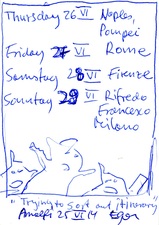 Thursday 26 VI Naples,
Pompei
Friday 27 VI Rome
Samstag 28 VI Firenze
Sonntag 29 VI Rifredo
Francesco
Milano
"Trying to sort and itinerary"
Amalfi 25 VI 14 Egon